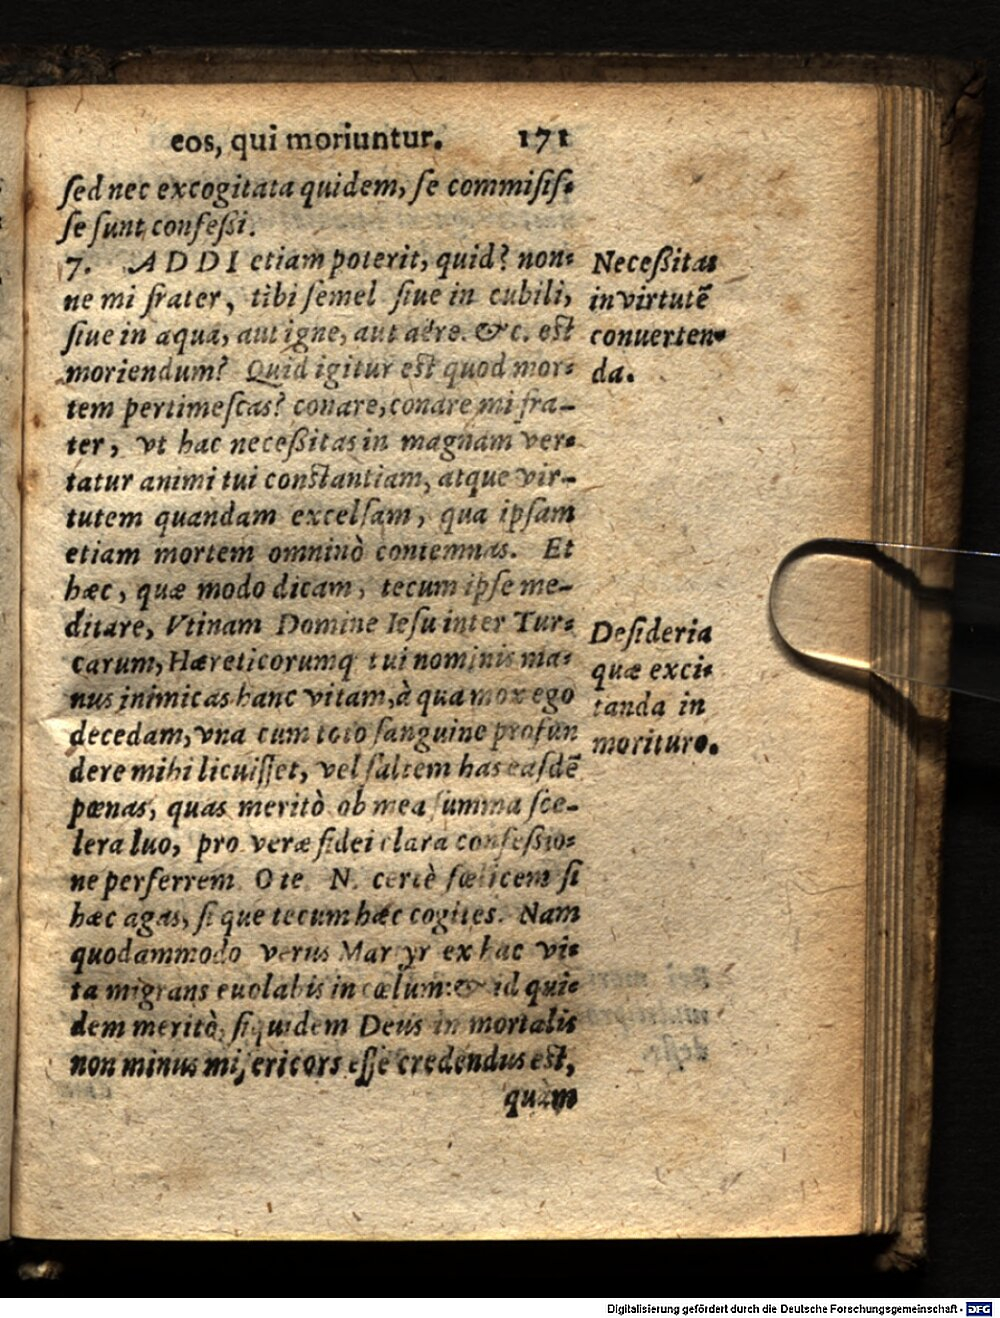 eos, qui moriuntur. 171
sed nec excogitata quidem, se commisis-
se sunt confessi.
7. ADDI etiam poterit, quid? non-
ne mi frater, tibi semel siue in cubili,
siue in aqua, aut igne, aut aëre. &c. est
moriendum? Quid igitur est quod mor-
tem pertimescas? conare, conare mi fra-
ter, vt hac necessitas in magnam ver-
tatur animi tui constantiam, atque vir-
tutem quandam excelsam, qua ipsam
etiam mortem omninò contemnas. Et
hæc, quæ modo dicam, tecum ipse me-
ditare, Vtinam Domine Iesu inter Tur-
carum, Hæreticorumq tui nominis ma-
nus inimicas hanc vitam, à qua mox ego
decedam, vna cum toto sanguine profun
dere mihi licuisset, vel saltem has easdē
pœnas, quas meritò ob mea summa sce-
lera luo, pro veræ fidei clara confessio-
ne perferrem. O te N. certè fœlicem si
hæc agas, si que tecum hæc cogites. Nam
quodammodo verus Martyr ex hac vi-
ta migrans euolabis in cœlum: & id qui-
dem meritò, siquidem Deus in mortalis
non minus misericors esse credendus est,
quàm
Necessitas
in virtutē
conuerten-
da.
Desideria
quæ exci-
tanda in
morituro.